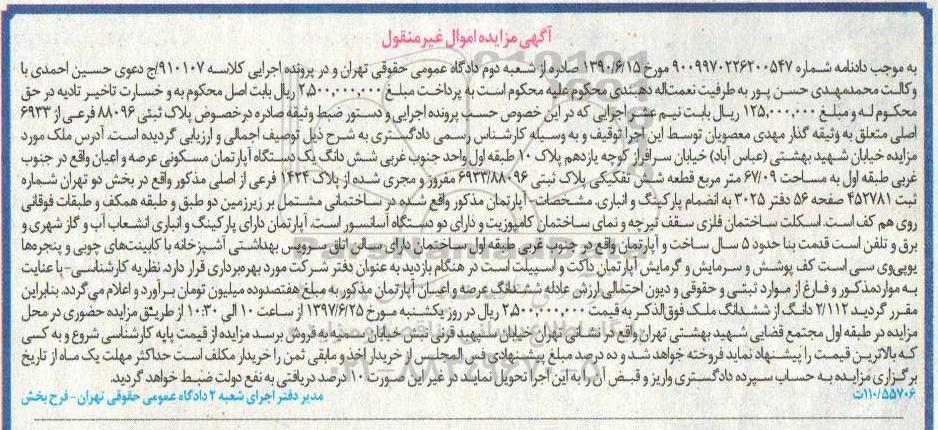 آگهی مزایده اموال غیر منقول
به موجب دادنامه شماره ۹۰۰۹۹۷۰۲۲۶۲۰۰۵۴۷ مورخ ۱۳۹۰/۶/۱۵ صادره از شعبه دوم دادگاه عمومی حقوقی تهران و در پرونده اجرایی کلاسه ۹۱۰۱۰۷/ج دعوی حسین احمدی با
وکالت محمدمهدی حسن پور به طرفیت نعمت‌اله دهبندی محکوم علیه محکوم است به پرداخت مبلغ ۲,۵۰۰,۰۰۰,۰۰۰ ریال بابت اصل محکوم به و خسارت تاخیر تادیه در حق
محکوم له و مبلغ ۱۲۵,۰۰۰,۰۰۰ ریال بابت نیم عشر اجرایی که در این خصوص حسب پرونده اجرایی و دستور ضبط وثیقه صادره در خصوص پلاک ثبتی ۸۸۰۹۶ فرعی از ۶۹۳۳
اصلی متعلق به وثیقه گذار مهدی معصومیان توسط این اجرا توقیف و به وسیله کارشناس رسمی دادگستری به شرح ذیل توصیف اجمالی و ارزیابی گردیده است. آدرس ملک مورد
مزایده خیابان شهید بهشتی (عباس آباد) خیابان سرافراز کوچه یازدهم پلاک ۱۰ طبقه اول واحد جنوب غربی شش دانگ یک دستگاه آپارتمان مسکونی عرصه و اعیان واقع در جنوب
غربی طبقه اول به مساحت ۶۷/۰۹ متر مربع قطعه شش تفکیکی پلاک ثبتی ۶۹۳۳/۸۸۰۹۶ مفروز و مجری شده از پلاک ۱۴۲۴ فرعی از اصلی مذکور واقع در بخش دو تهران شماره
۴۵۲۷۸۱ صفحه ۵۶ دفتر ۳۰۲۵ به انضمام پارکینگ و انباری. مشخصات- آپارتمان مذکور واقع شده در ساختمانی مشتمل بر زیرزمین دو طبق و طبقه همکف و طبقات فوقانی
روی هم کف است. اسکلت ساختمان فلزی سقف تیرچه و نمای ساختمان کامپوزیت و دارای دو دستگاه آسانسور است. آپارتمان دارای پارکینگ و انباری انشعاب آب و گاز شهری و
برق و تلفن است قدمت بنا حدود ۵ سال ساخت و آپارتمان واقع در جنوب غربی طبقه اول ساختمان دارای سالن اتاق سرویس بهداشتی آشپزخانه با کابینت‌های چوبی و پنجره‌ها
یوپی‌وی سی است کف پوشش و سرمایش و گرمایش آپارتمان داکت و اسپیلت است در هنگام بازدید به عنوان دفتر شرکت مورد بهره‌برداری قرار دارد. نظریه کارشناسی- با عنایت
به موارد مذکور و فارغ از موارد ثبتی و حقوقی و دیون احتمالی ارزش عادله ششدانگ عرصه و اعیان آپارتمان مذکور به مبلغ هفتصد و ده میلیون تومان برآورد و اعلام می‌گردد. بنابراین
مقرر گردید ۲/۱۱۲ دانگ از ششدانگ ملک فوق الذکر به قیمت ۲,۵۰۰,۰۰۰,۰۰۰ ریال در روز یکشنبه مورخ ۱۳۹۷/۶/۲۵ از ساعت ۱۰ الی ۱۰:۳۰ از طریق مزایده حضوری در محل
مزایده در طبقه اول مجتمع قضایی شهید بهشتی تهران واقع در نشانی تهران خیابان سپهبد قرنی نبش خیابان سمیه به فروش برسد مزایده از قیمت پایه کارشناسی شروع و به کسی
که بالاترین قیمت را پیشنهاد نماید فروخته خواهد شد و ده درصد مبلغ پیشنهادی فی المجلس از خریدار اخذ و مابقی ثمن را خریدار مکلف است حداکثر مهلت یک ماه از تاریخ
برگزاری مزایده به حساب سپرده دادگستری واریز و قبض آن را به این اجرا تحویل نمایند در غیر این صورت ۱۰ درصد دریافتی به نفع دولت ضبط خواهد گردید.
۱۱۰/۵۵۷۰۶ت مدیر دفتر اجرای شعبه ۲ دادگاه عمومی حقوقی تهران- فرح بخش